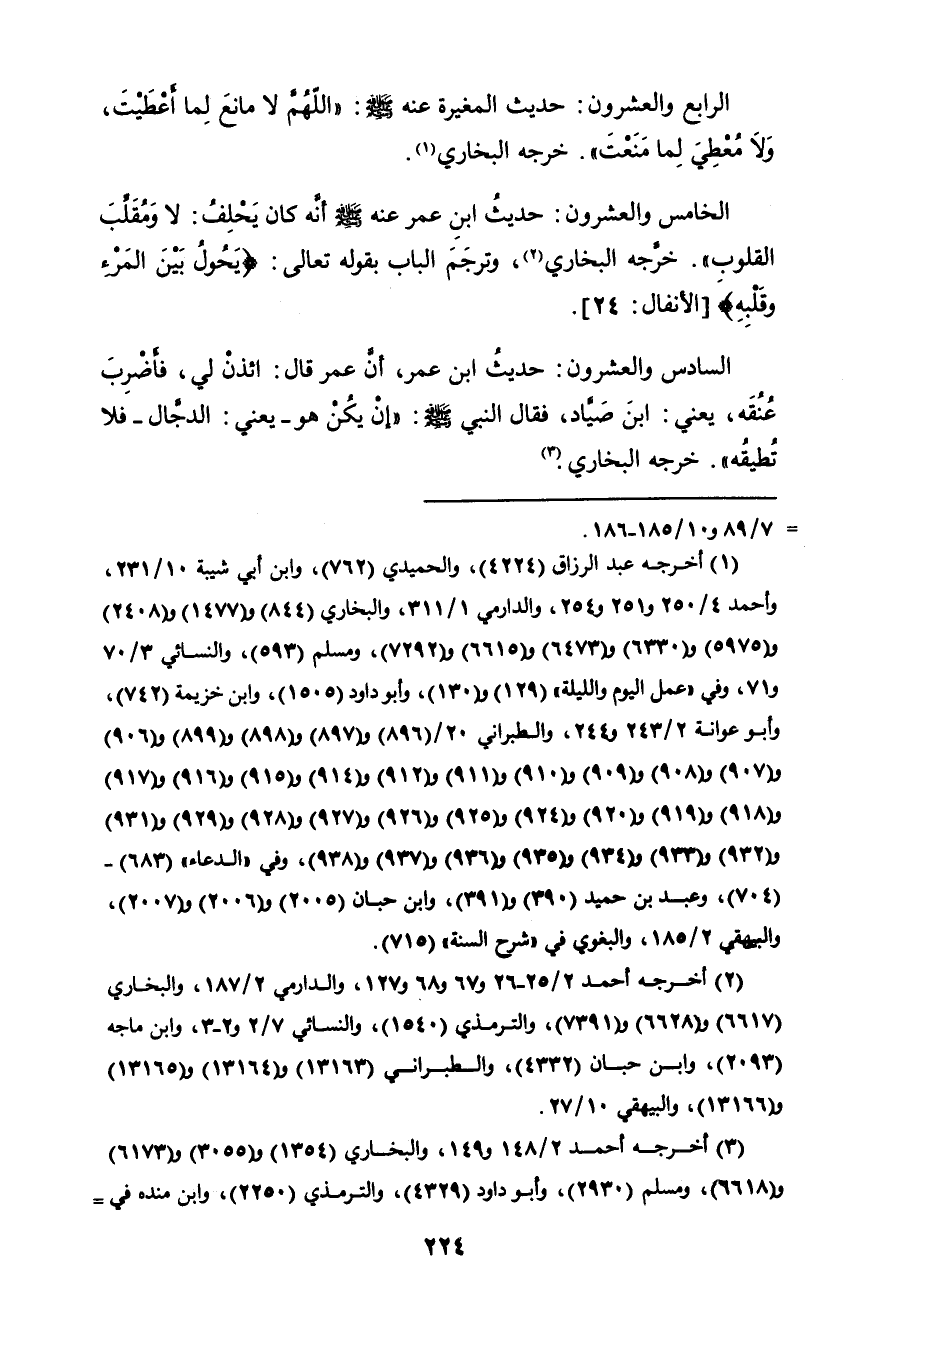 الرابع والعشرون: حديث المغيرة عنه ﷺ: «اللَّهُمَّ لا مانعَ لِما أَعْطَيْتَ،
وَلَا مُعْطِيَ لِما مَنَعْتَ». خرجه البخاري(١).
الخامس والعشرون: حديثُ ابنِ عمر عنه ﷺ أنَّه كان يَحْلِفُ: لا وَمُقَلِّبَ
القلوبِ». خرَّجه البخاري(٢)، وترجَمَ الباب بقوله تعالى: ﴿يَحُولُ بَيْنَ المَرْءِ
وقَلْبِهِ﴾ [الأنفال: ٢٤].
السادس والعشرون: حديثُ ابن عمر، أنَّ عمر قال: ائذنْ لي، فأَضْرِبَ
عُنُقَه، يعني: ابنَ صَيَّاد، فقال النبي ﷺ: «إنْ يكُنْ هو ـ يعني: الدجَّال ـ فلا
تُطيقُه». خرجه البخاري(٣).
= ٨٩/٧ و١٨٥/١٠-١٨٦.
(١) أخرجه عبد الرزاق (٤٢٢٤)، والحميدي (٧٦٢)، وابن أبي شيبة ٢٣١/١٠،
وأحمد ٢٥٠/٤ و٢٥١ و٢٥٤، والدارمي ٣١١/١، والبخاري (٨٤٤) و(١٤٧٧) و(٢٤٠٨)
و(٥٩٧٥) و(٦٣٣٠) و(٦٤٧٣) و(٦٦١٥) و(٧٢٩٢)، ومسلم (٥٩٣)، والنسائي ٧٠/٣
و٧١، وفي «عمل اليوم والليلة» (١٢٩) و(١٣٠)، وأبو داود (١٥٠٥)، وابن خزيمة (٧٤٢)،
وأبو عوانة ٢٤٣/٢ و٢٤٤، والطبراني ٢٠/(٨٩٦) و(٨٩٧) و(٨٩٨) و(٨٩٩) و(٩٠٦)
و(٩٠٧) و(٩٠٨) و(٩٠٩) و(٩١٠) و(٩١١) و(٩١٢) و(٩١٤) و(٩١٥) و(٩١٦) و(٩١٧)
و(٩١٨) و(٩١٩) و(٩٢٠) و(٩٢٤) و(٩٢٥) و(٩٢٦) و(٩٢٧) و(٩٢٨) و(٩٢٩) و(٩٣١)
و(٩٣٢) و(٩٣٣) و(٩٣٤) و(٩٣٥) و(٩٣٦) و(٩٣٧) و(٩٣٨)، وفي «الدعاء» (٦٨٣) -
(٧٠٤)، وعبد بن حميد (٣٩٠) و(٣٩١)، وابن حبان (٢٠٠٥) و(٢٠٠٦) و(٢٠٠٧)،
والبيهقي ١٨٥/٢، والبغوي في «شرح السنة» (٧١٥).
(٢) أخرجه أحمد ٢٥/٢-٢٦ و٦٧ و٦٨ و١٢٧، والدارمي ١٨٧/٢، والبخاري
(٦٦١٧) و(٦٦٢٨) و(٧٣٩١)، والترمذي (١٥٤٠)، والنسائي ٢/٧ و٢-٣، وابن ماجه
(٢٠٩٣)، وابن حبان (٤٣٣٢)، والطبراني (١٣١٦٣) و(١٣١٦٤) و(١٣١٦٥)
و(١٣١٦٦)، والبيهقي ٢٧/١٠.
(٣) أخرجه أحمد ١٤٨/٢ و١٤٩، والبخاري (١٣٥٤) و(٣٠٥٥) و(٦١٧٣)
و(٦٦١٨)، ومسلم (٢٩٣٠)، وأبو داود (٤٣٢٩)، والترمذي (٢٢٥٠)، وابن منده في =
٢٢٤